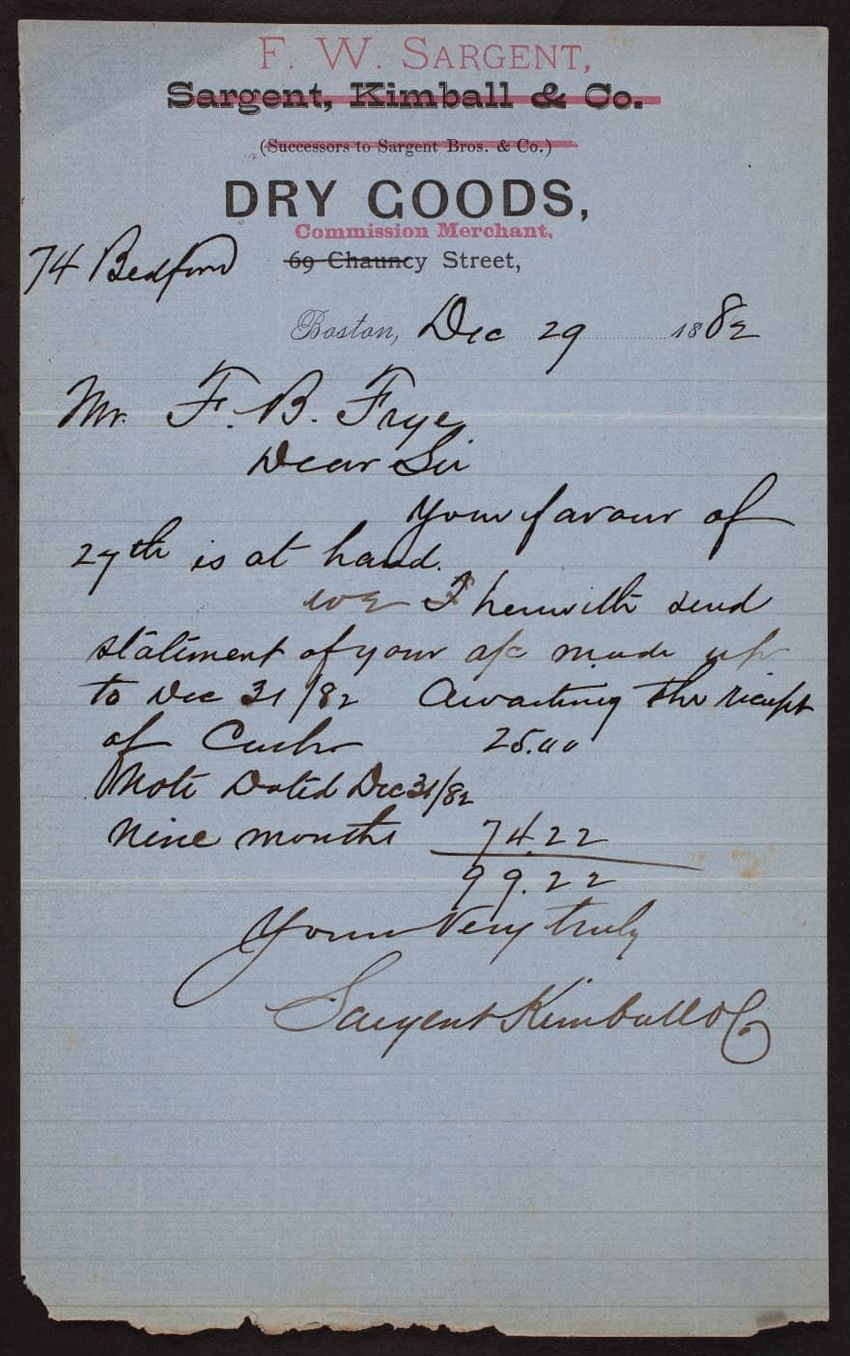 F. W. SARGENT,
Sargent, Kimball & Co.
(Successors to Sargent Bros. & Co.)
DRY GOODS,
Commission Merchant,
74 Bedford 69 Chauncy Street,
Boston, Dec 29 1882
Mr. F. B. Frye
Dear Sir
Your favour of
27th is at hand.
we I herewith send
statement of your a/c made up
to Dec 31/82 Awaiting the receipt
of Cash 25.00
Note Dated Dec 31/82
nine months 74.22
99.22
Yours Very truly
Sargent Kimball & Co